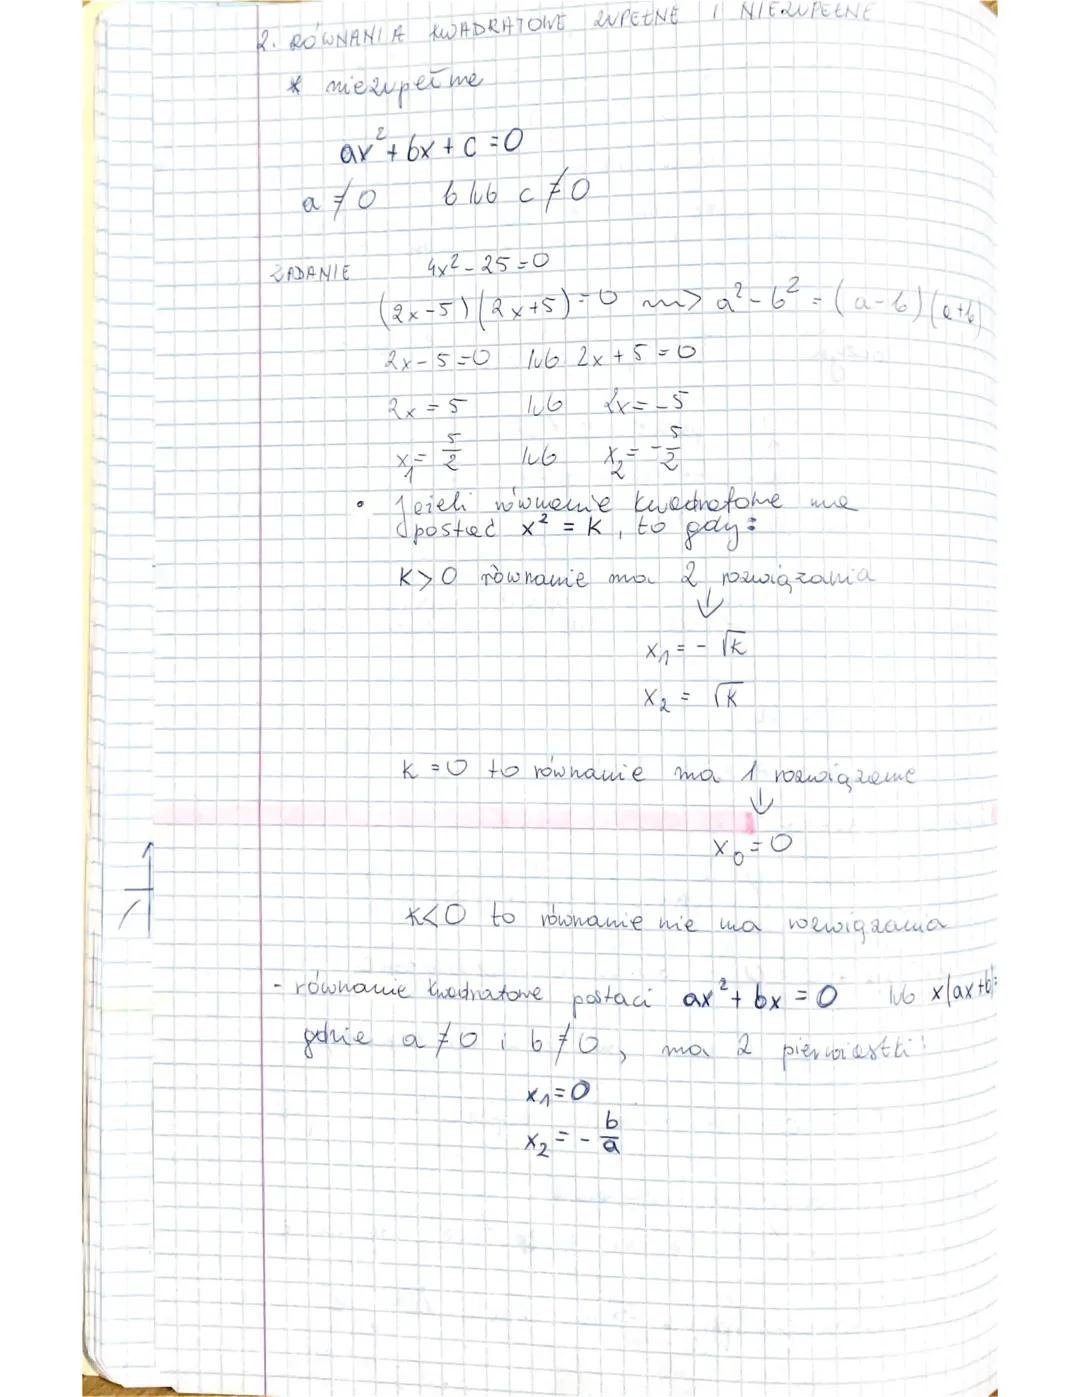 2. RÓWNANIA KWADRATOWE ZUPEŁNE I NIEZUPEŁNE
* niezupełne
ax² + bx + c = 0
a ≠ 0 b lub c ≠ 0
ZADANIE 4x² - 25 = 0
(2x-5)(2x+5) = 0 ~> a² - b² = (a-b)(a+b)
2x - 5 = 0 lub 2x + 5 = 0
2x = 5 lub 2x = -5
x₁ = 5/2 lub x₂ = -5/2
• Jeżeli równanie kwadratowe ma
postać x² = K, to gdy:
K > 0 równanie ma 2 rozwiązania
↓
x₁ = - √K
x₂ = √K
K = 0 to równanie ma 1 rozwiązanie
↓
x₀ = 0
K < 0 to równanie nie ma rozwiązania
- równanie kwadratowe postaci ax² + bx = 0 lub x(ax+b)=
gdzie a ≠ 0 i b ≠ 0, ma 2 pierwiastki:
x₁ = 0
x₂ = - b/a